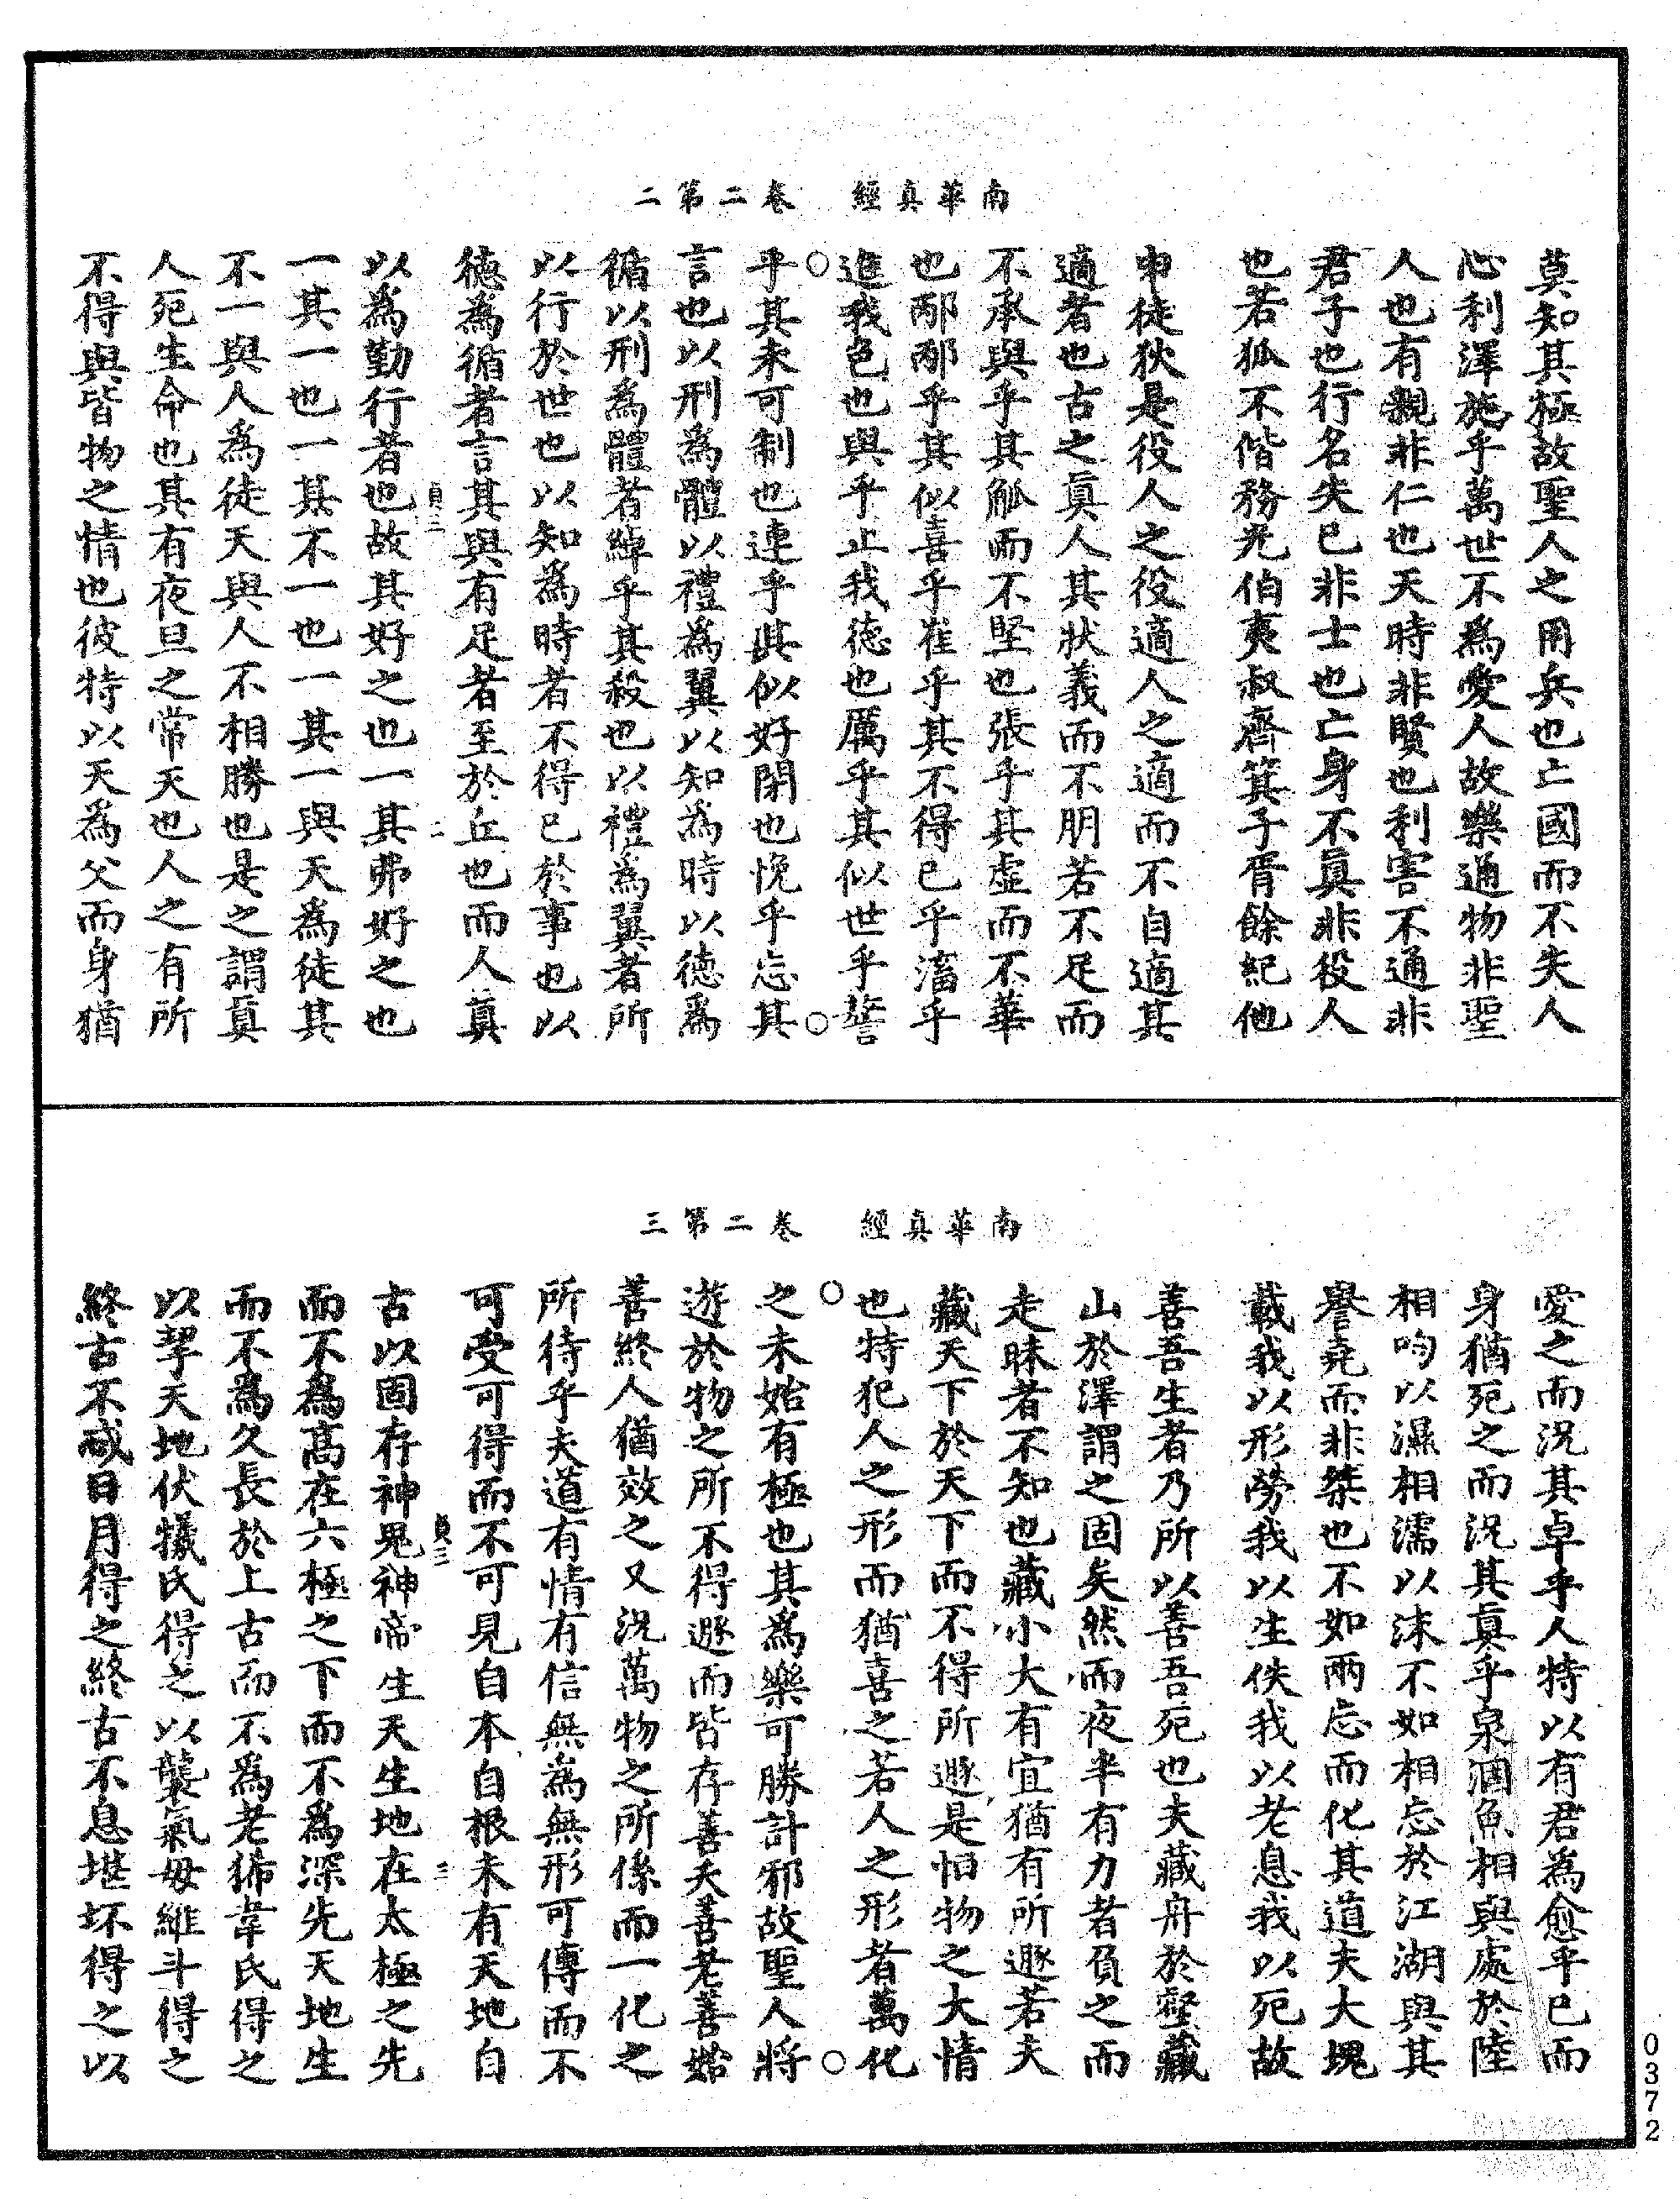 南華真經　卷二第二
莫知其極故聖人之用兵也亡國而不失人
心利澤施乎萬世不為愛人故樂通物非聖
人也有親非仁也天時非賢也利害不通非
君子也行名失已非士也亡身不真非役人
也若狐不偕務光伯夷叔齊箕子胥餘紀他
申徒狄是役人之役適人之適而不自適其
適者也古之真人其狀義而不朋若不足而
不承與乎其觚而不堅也張乎其虛而不華
也邴邴乎其似喜乎崔乎其不得已乎滀乎
進我色也與乎止我德也厲乎其似世乎謷
乎其未可制也連乎其似好閉也悗乎忘其
言也以刑為體以禮為翼以知為時以德為
循以刑為體者綽乎其殺也以禮為翼者所
以行於世也以知為時者不得已於事也以
德為循者言其與有足者至於丘也而人真
貞三　二
以為勤行者也故其好之也一其弗好之也
一其一也一其不一也一其一與天為徒其
不一與人為徒天與人不相勝也是之謂真
人死生命也其有夜旦之常天也人之有所
不得與皆物之情也彼特以天為父而身猶
南華真經　卷二第三
愛之而況其卓乎人特以有君為愈乎已而
身猶死之而況其真乎泉涸魚相與處於陸
相呴以濕相濡以沫不如相忘於江湖與其
譽堯而非桀也不如兩忘而化其道夫大塊
載我以形勞我以生佚我以老息我以死故
善吾生者乃所以善吾死也夫藏舟於壑藏
山於澤謂之固矣然而夜半有力者負之而
走昧者不知也藏小大有宜猶有所遯若夫
藏天下於天下而不得所遯是恒物之大情
也特犯人之形而猶喜之若人之形者萬化
之未始有極也其為樂可勝計邪故聖人將
遊於物之所不得遯而皆存善夭善老善始
善終人猶效之又況萬物之所係而一化之
所待乎夫道有情有信無為無形可傳而不
可受可得而不可見自本自根未有天地自
貞三　三
古以固存神鬼神帝生天生地在太極之先
而不為高在六極之下而不為深先天地生
而不為久長於上古而不為老狶韋氏得之
以挈天地伏犧氏得之以襲氣母維斗得之
終古不忒日月得之終古不息堪坏得之以
0372